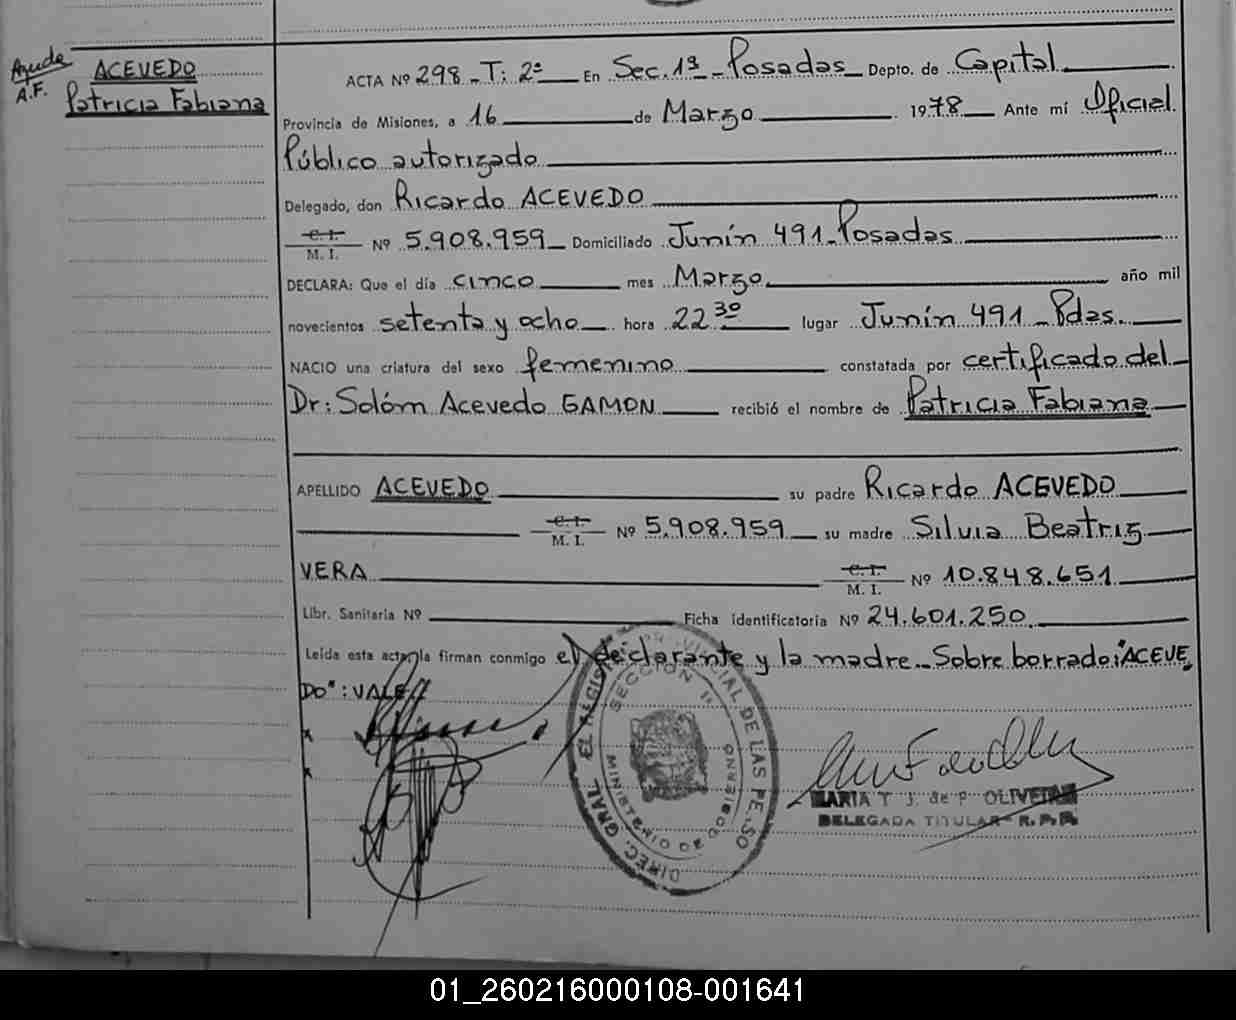 Ayuda
A.F.
ACEVEDO
Patricia Fabiana
ACTA Nº 298 - T: 2º En Sec. 1ª - Posadas Depto. de Capital
Provincia de Misiones, a 16 de Marzo 1978 Ante mí Oficial
Público autorizado
Delegado, don Ricardo ACEVEDO
C. I. M. I. Nº 5.908.959 Domiciliado Junín 491 - Posadas
DECLARA: Que el día cinco mes Marzo año mil
novecientos setenta y ocho hora 22 30 lugar Junín 491 - Pdas.
NACIO una criatura del sexo femenino constatada por certificado del
Dr: Solóm Acevedo GAMON recibió el nombre de Patricia Fabiana
APELLIDO ACEVEDO su padre Ricardo ACEVEDO
C. I. M. I. Nº 5.908.959 su madre Silvia Beatriz
VERA C. I. M. I. Nº 10.848.651
Libr. Sanitaria Nº Ficha identificatoria Nº 24.601.250
Leída esta acta, la firman conmigo el declarante y la madre. Sobre borrado: "ACEVE
DO": VALE
DIREC. GRAL. DEL REGISTRO PROVINCIAL DE LAS PERSO
SECCION
MINISTERIO DE GOBIERNO
MARIA T. J. de P. OLIVEIRA
DELEGADA TITULAR - R.P.P.
01_260216000108-001641